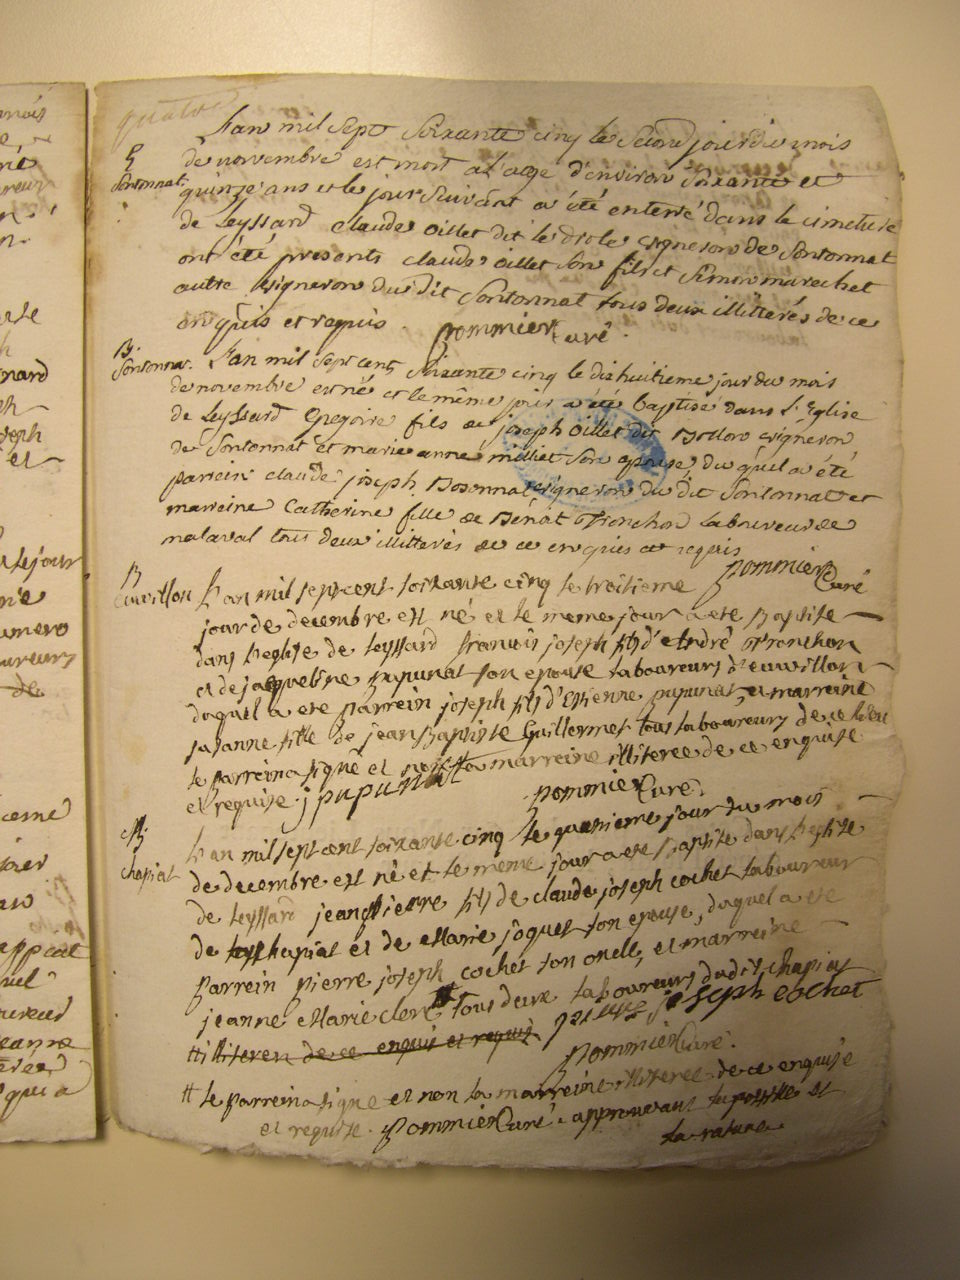 quatre
L'an mil sept soixante cinq le second jour du mois
S
Sonsonnat
de novembre est mort a l'age d'environ soixante et
quinze ans et le jour suivant a été enterré dans le cimetiere
de Leyssard claude oillet dit le drole vigneron de Sonsonnat
ont été presents claude oillet son fils et Simon marechet
autre vigneron du dit Sonsonnat tous deux illitterés de ce
enquis et requis. pommier curé.
B.
Sonsonnat. L'an mil sept cent soixante cinq le dixhuitieme jour du mois
de novembre est né et le même jour a été baptisé dans l'Eglise
de Leyssard Gregoire fils de joseph oillet dit vigneron
de Sonsonnat et marie anne millet son epouse, du quel a été
parrein claude joseph vigneron du dit Sonsonnat et
marreine Catherine fille de Benoit Tronchon laboureur de
malaval tous deux illitterés de ce enquis et requis
pommier Curé
B
L'an mil sept cent soixante cinq le troisieme
jour de decembre est né et le meme jour a ete Baptisé
dans l'eglise de leyssard françois joseph fils d'André Tronchon
et de jacqueline pupunat son epouse laboureurs d'euvillon
duquel a ete parrein joseph fils d'Etienne pupunat, et marreine
susanne fille de jean Baptiste Guillermet tous laboureurs de ce lieu
le parrein a signé et non la marreine illiteree de ce enquise
et requise j pupunat pommier Curé
chapiat
L'an mil sept cent soixante cinq le quatrieme jour du mois
de decembre est né et le meme jour a ete Baptisé dans l'eglise
de leyssard jean pierre fils de claude joseph cochet laboureur
de chapiat et de Marie joquet son epouse, duquel a ete
parrein pierre joseph cochet son oncle, et marreine
jeanne Marie clerc tous deux laboureurs dudit chapiat
illiteres de ce enquis et requis joseph cochet
pommier Curé.
# le parrein a signé et non la marreine illiteree de ce enquise
et requise. pommier Curé approuvant et
la rature